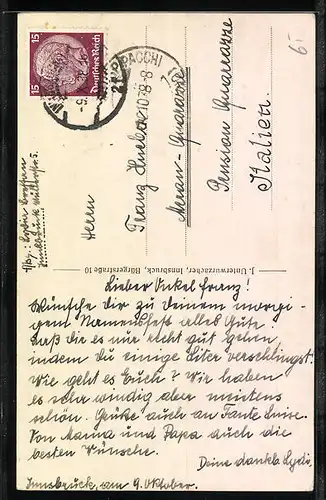 15
15
Deutsches Reich
PACCHI
10 38-8
21
6⁻
Herrn
Franz
Meran-
Pension
Italien.
J. Unterwurzacher, Innsbruck, Bürgerstraße 10
Lieber Onkel Franz!
Wünsche Dir zu Deinem morgi-
gem Namensfest alles Gute!
Laß dir es nur recht gut gehen,
indem Du einige Liter verschlingst.
Wie geht es Euch? Wir haben
es sehr windig aber meistens
schön. Grüße auch an Tante Luise.
Von Mama und Papa auch die
besten Wünsche.
Deine dankb. Lydi.
Innsbruck, am 9. Oktober.